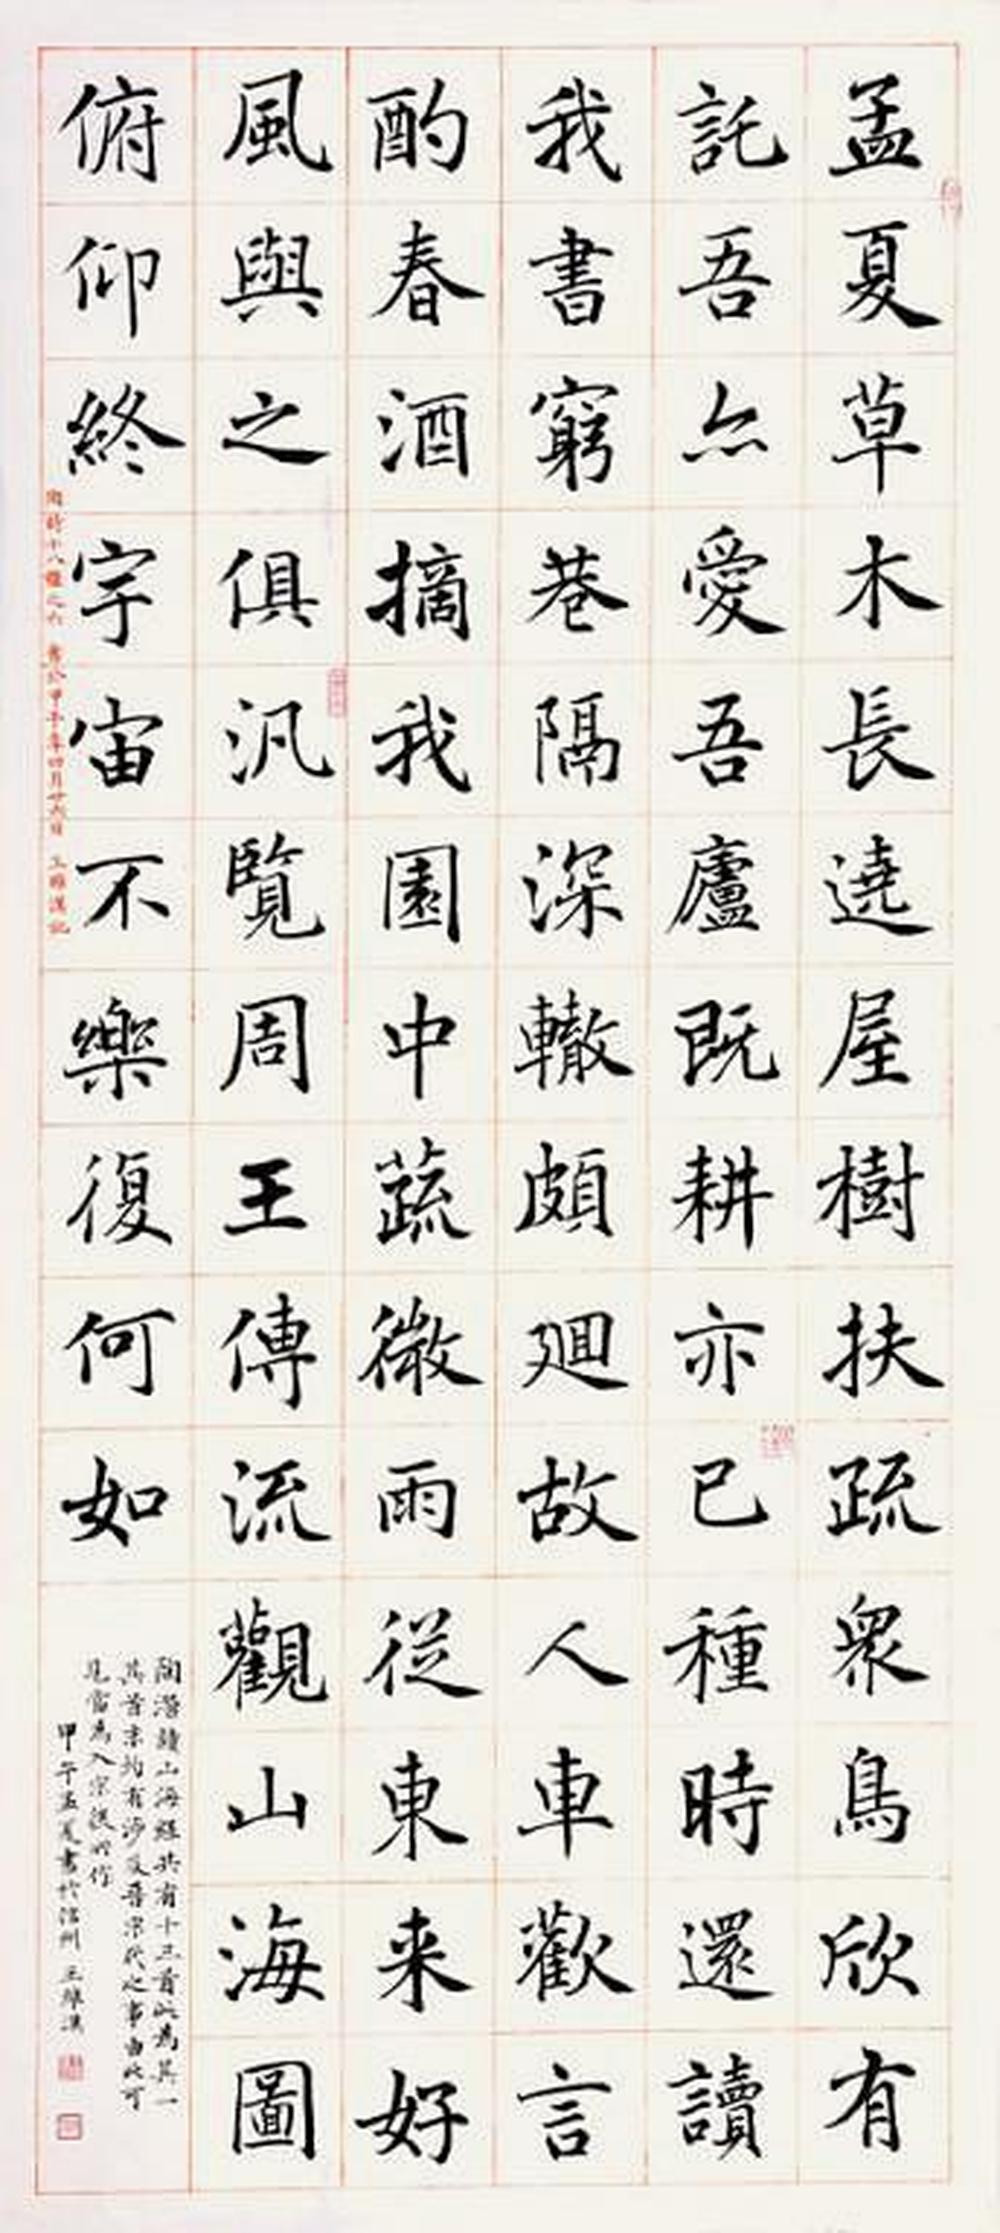 孟夏草木長遶屋樹扶疏衆鳥欣有
託吾亦愛吾廬既耕亦已種時還讀
我書窮巷隔深轍頗廻故人車歡言
酌春酒摘我園中蔬微雨從東来好
風與之俱汎覽周王傳流觀山海圖
俯仰終宇宙不樂復何如
陶潛讀山海經共有十三首此為其一
其首末均有涉及晉宋代之事由此可
見當為入宋後所作
甲午孟夏書於州王
陶詩十八種之六 書於甲午年四月廿六日 王記